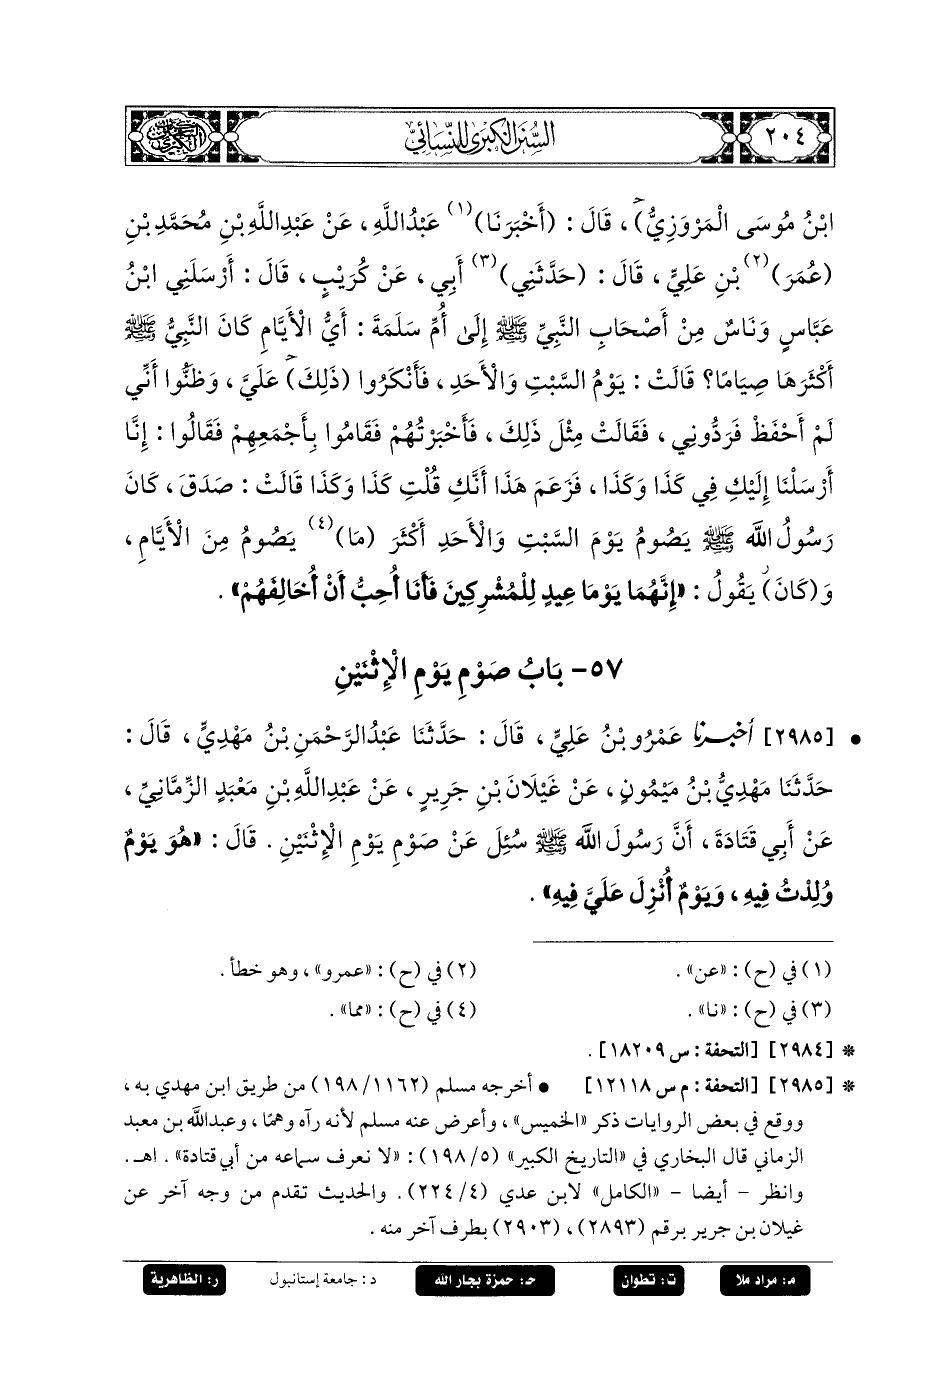 ٢٠٤
السُّنَنُ الكُبْرَىٰ لِلنَّسَائِيِّ
ابْنُ مُوسَى الْمَرْوَزِيُّ) ، قَالَ : (أَخْبَرَنَا)(١) عَبْدُاللَّهِ ، عَنْ عَبْدِاللَّهِ بْنِ مُحَمَّدِ بْنِ
(عُمَرَ)(٢) بْنِ عَلِيٍّ ، قَالَ : (حَدَّثَنِي)(٣) أَبِي ، عَنْ كُرَيْبٍ ، قَالَ : أَرْسَلَنِي ابْنُ
عَبَّاسٍ وَنَاسٌ مِنْ أَصْحَابِ النَّبِيِّ ﷺ إِلَىٰ أُمِّ سَلَمَةَ : أَيُّ الْأَيَّامِ كَانَ النَّبِيُّ ﷺ
أَكْثَرَهَا صِيَامًا؟ قَالَتْ : يَوْمُ السَّبْتِ وَالْأَحَدِ ، فَأَنْكَرُوا (ذَلِكَ) عَلَيَّ ، وَظَنُّوا أَنِّي
لَمْ أَحْفَظْ فَرَدُّونِي ، فَقَالَتْ مِثْلَ ذَلِكَ ، فَأَخْبَرْتُهُمْ فَقَامُوا بِأَجْمَعِهِمْ فَقَالُوا : إِنَّا
أَرْسَلْنَا إِلَيْكِ فِي كَذَا وَكَذَا ، فَزَعَمَ هَذَا أَنَّكِ قُلْتِ كَذَا وَكَذَا قَالَتْ : صَدَقَ ، كَانَ
رَسُولُ اللَّهِ ﷺ يَصُومُ يَوْمَ السَّبْتِ وَالْأَحَدِ أَكْثَرَ (مَا)(٤) يَصُومُ مِنَ الْأَيَّامِ ،
وَ(كَانَ) يَقُولُ : «إِنَّهُمَا يَوْمَا عِيدٍ لِلْمُشْرِكِينَ فَأَنَا أُحِبُّ أَنْ أُخَالِفَهُمْ» .
٥٧- بَابُ صَوْمِ يَوْمِ الْإِثْنَيْنِ
• [٢٩٨٥] أَخْبَرَنَا عَمْرُو بْنُ عَلِيٍّ ، قَالَ : حَدَّثَنَا عَبْدُالرَّحْمَنِ بْنُ مَهْدِيٍّ ، قَالَ :
حَدَّثَنَا مَهْدِيُّ بْنُ مَيْمُونٍ ، عَنْ غَيْلَانَ بْنِ جَرِيرٍ ، عَنْ عَبْدِاللَّهِ بْنِ مَعْبَدٍ الزِّمَّانِيِّ ،
عَنْ أَبِي قَتَادَةَ ، أَنَّ رَسُولَ اللَّهِ ﷺ سُئِلَ عَنْ صَوْمِ يَوْمِ الْإِثْنَيْنِ . قَالَ : «هُوَ يَوْمٌ
وُلِدْتُ فِيهِ ، وَيَوْمٌ أُنْزِلَ عَلَيَّ فِيهِ» .
(١) في (ح) : «عن» . (٢) في (ح) : «عمرو» ، وهو خطأ .
(٣) في (ح) : «نا» . (٤) في (ح) : «مما» .
* [٢٩٨٤] [التحفة : س ١٨٢٠٩] .
* [٢٩٨٥] [التحفة : م س ١٢١١٨] • أخرجه مسلم (١٩٨/١١٦٢) من طريق ابن مهدي به ،
ووقع في بعض الروايات ذكر «الخميس» ، وأعرض عنه مسلم لأنه رآه وهمًا ، وعبدالله بن معبد
الزماني قال البخاري في «التاريخ الكبير» (١٩٨/٥) : «لا نعرف سماعه من أبي قتادة» . اهـ .
وانظر - أيضا - «الكامل» لابن عدي (٢٢٤/٤) . والحديث تقدم من وجه آخر عن
غيلان بن جرير برقم (٢٨٩٣) ، (٢٩٠٣) بطرف آخر منه .
م: مراد ملا ت: تطوان ح: حمزة بجار الله د: جامعة إستانبول ر: الظاهرية